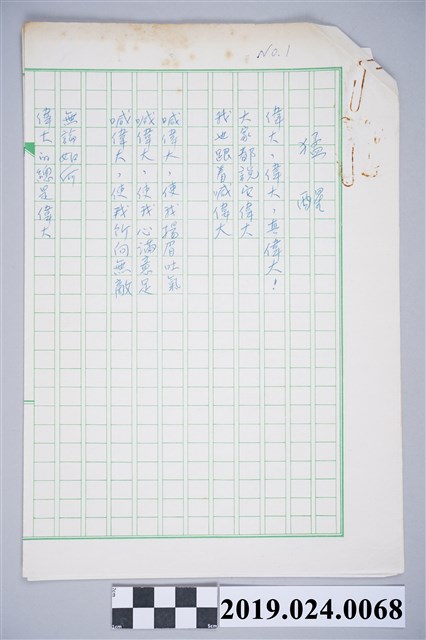 No.1
猛醒
偉大,偉大,真偉大!
大家都說它偉大
我也跟着喊偉大
喊偉大,使我揚眉吐氣
喊偉大,使我心滿意足
喊偉大,使我所向無敵
無論如何
偉大的總是偉大
2019.024.0068